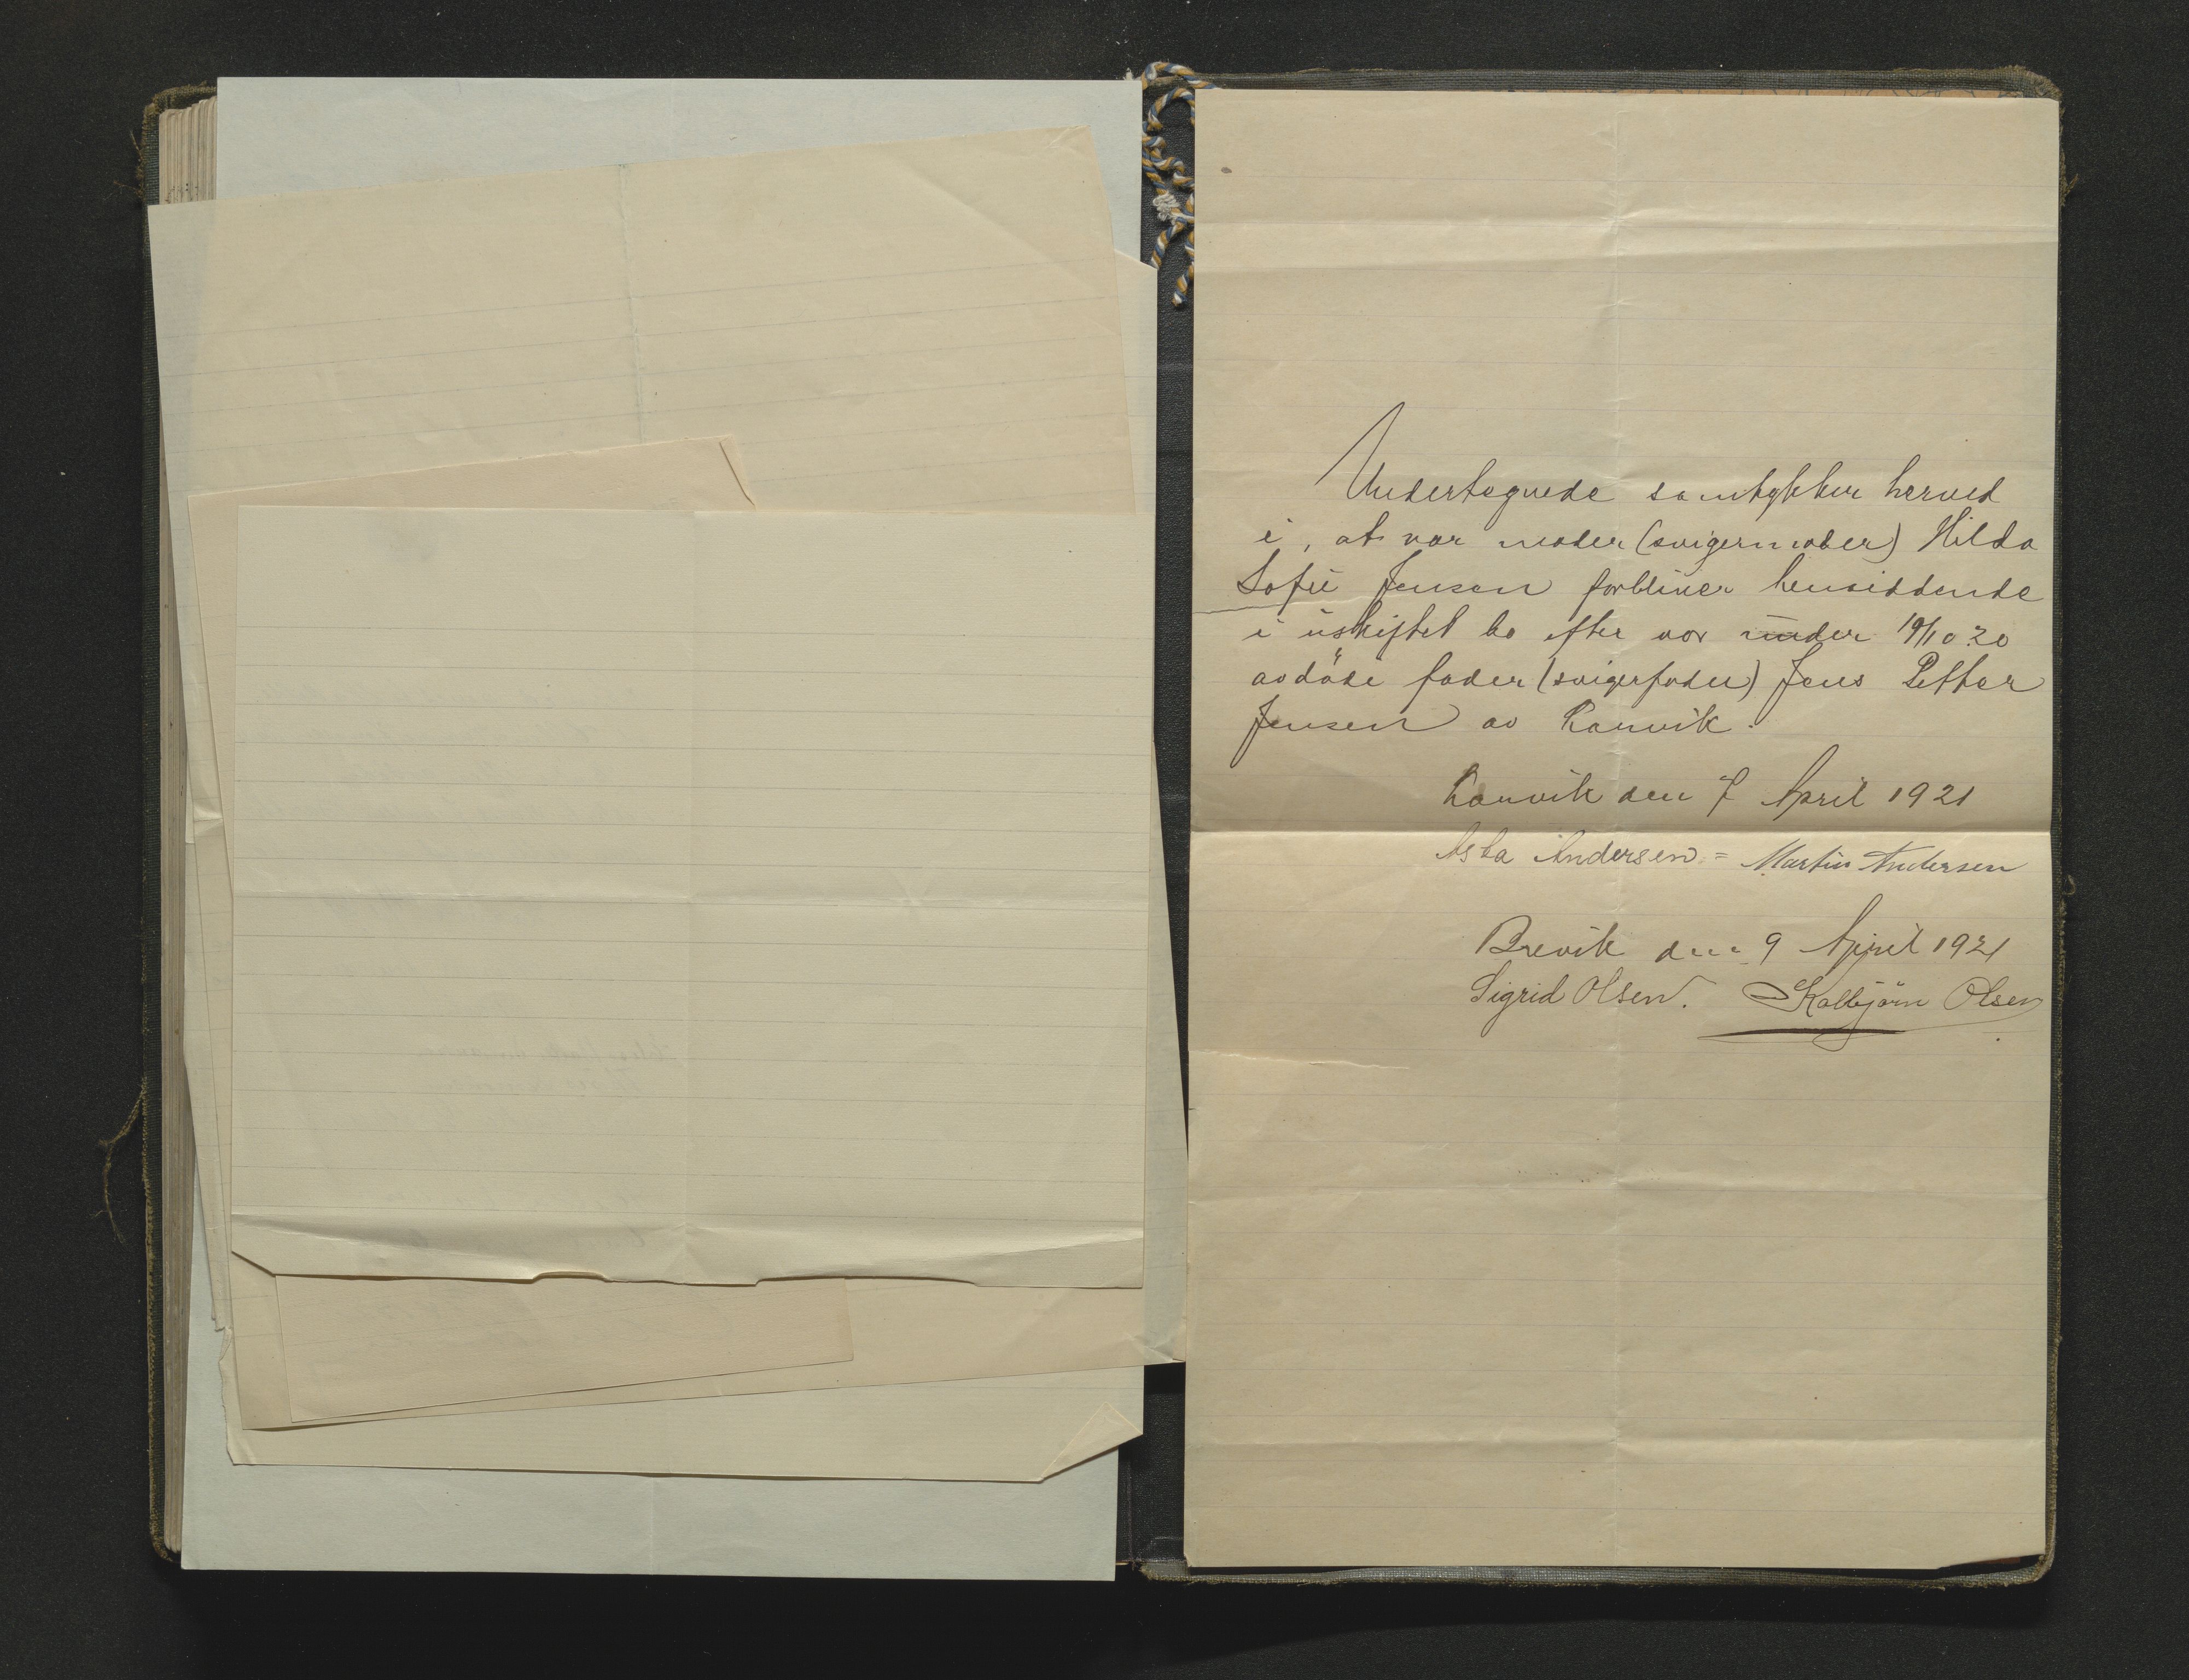 Undertegnede samtykker herved
i, at vor moder (svigermoder) Hilda
Sofie Jensen forbliver hensiddende
i uskiftet bo efter vor under 19/10 20
avdöde fader (svigerfader) Jens Petter
Jensen av Lanvik.
Lanvik den 7 April 1921
Asta Andersen = Martin Andersen
Brevik den 9 April 1921
Sigrid Olsen. Kolbjörn Olsen